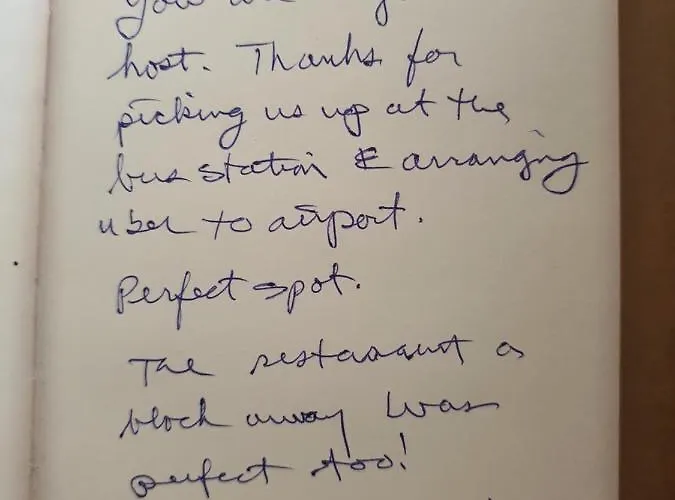 You
host. Thanks for
picking us up at the
bus station & arranging
uber to airport.
Perfect spot.
The restaraunt a
block away was
perfect too!